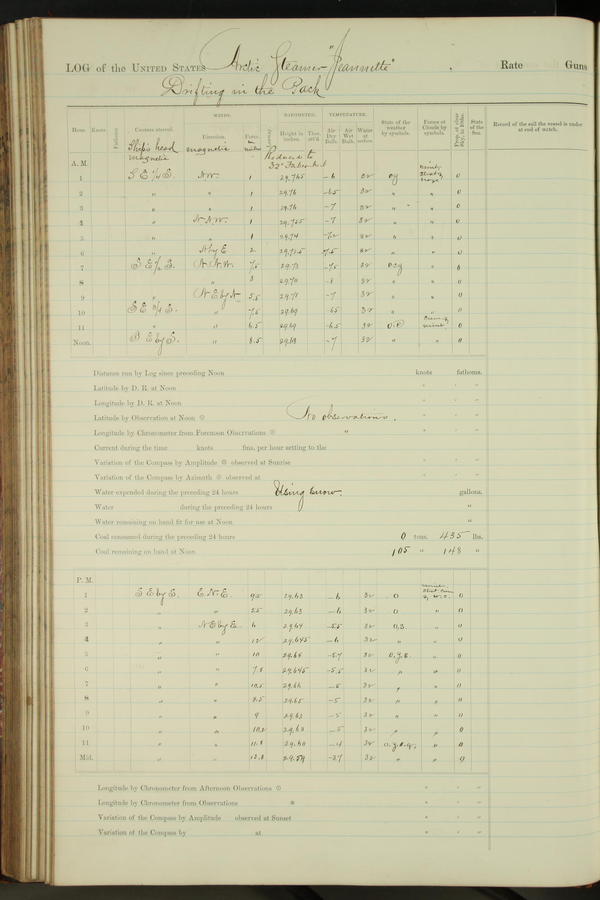 LOG of the UNITED STATES Arctic Steamer "Jeannette" Rate Guns
Drifting in the Pack
WINDS. BAROMETER. TEMPERATURE.
Hour. Knots. Fathoms. Courses steered. Direction. Force. Leeway. Height in inches. Ther. att'd. Air Dry Bulb. Air Wet Bulb. Water at surface. State of the weather by symbols. Forms of Clouds by symbols. Prop. of clear sky in 10ths. State of the Sea. Record of the sail the vessel is under at end of watch.
Ship's head magnetic magnetic in miles Reduced to 32° Fahrenheit
A. M.
1 S E ¼ E. N.W. 1 29.765 -6 32 0
2 " " 1 29.76 -6.5 32 " " 0
3 " " 1 29.76 -7 32 " " 0
4 " N.N.W. 1 29.755 -7 32 " " 0
5 " " 1 29.74 -7.2 32 " " 0
6 " N by E 2 32 " " 0
7 N.N.W. 7.5 29.73 -7.5 32
8 " " 3 29.70 -8 32 " "
9 " N E by N 5.5 -7 32 " " 0
10 S E ¾ E. " 7.5 29.69 -6.5 32 " " 0
11 " " 6.5 29.69 -6.5 32 0
Noon. S E by E. " 8.5 29.68 -7 32 " " 0
Distance run by Log since preceding Noon knots fathoms.
Latitude by D. R. at Noon ° ' "
Longitude by D. R. at Noon ° ' "
Latitude by Observation at Noon No observations. ° ' "
Longitude by Chronometer from Forenoon Observations " ° ' "
Current during the time knots fms. per hour setting to the
Variation of the Compass by Amplitude observed at Sunrise ° ' "
Variation of the Compass by Azimuth observed at ° ' "
Water expended during the preceding 24 hours Using snow. gallons.
Water during the preceding 24 hours "
Water remaining on hand fit for use at Noon "
Coal consumed during the preceding 24 hours 0 tons. 435 lbs.
Coal remaining on hand at Noon 105 " 148 "
P. M.
1 S E by E. E.N.E. 9.5 29.63 -6 32 0 0
2 " " 25 29.63 -6 32 0 " 0
3 " N E by E. 6 29.64 -5.5 32 " 0
4 " " 12 29.645 -6 32 " " 0
5 " " 10 29.64 -5.7 32 " 0
6 " " 7.8 29.645 -5.5 32 " " 0
7 " " 10.5 29.66 -5 32 " " 0
8 " " 8.5 29.65 -5 32 " " 0
9 " " 9 29.63 -5 32 " " 0
10 " " 10.2 29.63 -5 32 " " 0
11 " " 11.8 29.60 -4 32 " 0
Mid. " " 12.8 29.59 -3.7 32 " " 0
Longitude by Chronometer from Afternoon Observations ° ' "
Longitude by Chronometer from Observations ° ' "
Variation of the Compass by Amplitude observed at Sunset ° ' "
Variation of the Compass by at ° ' "